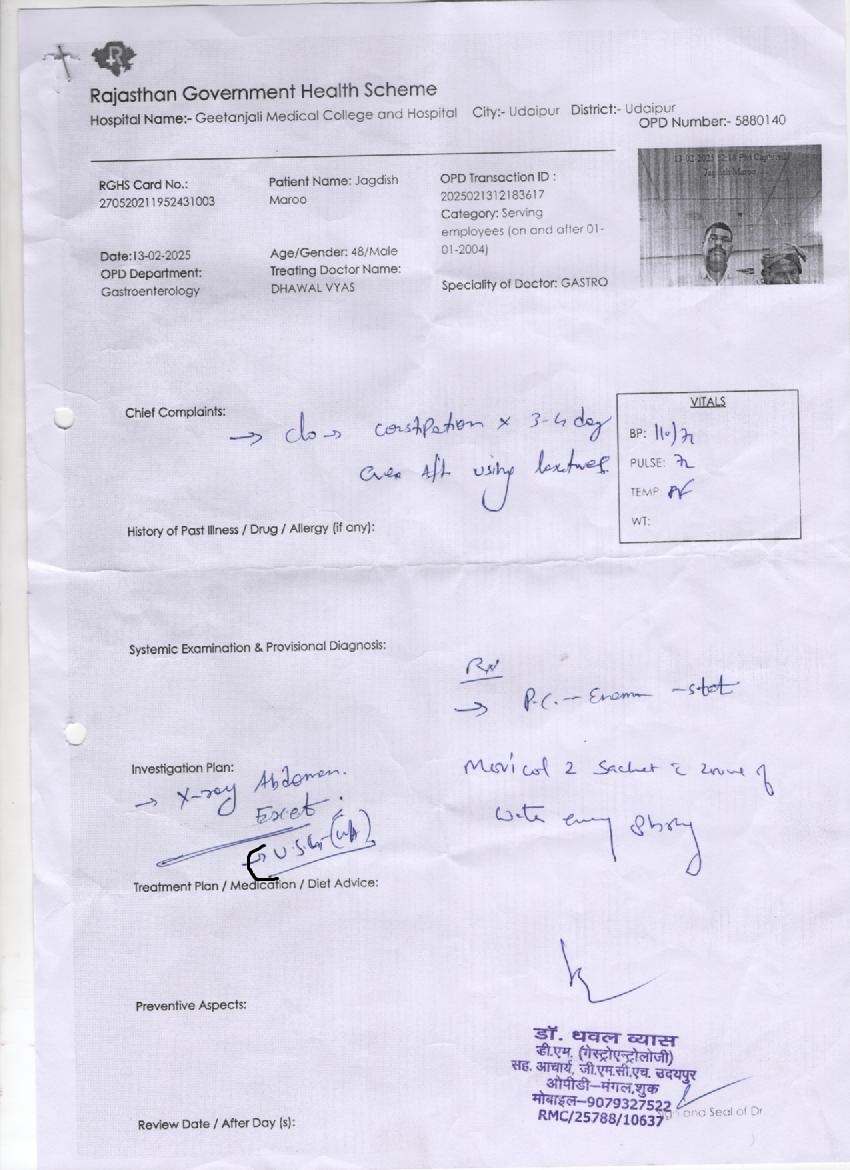 Rajasthan Government Health Scheme
Hospital Name:- Geetanjali Medical College and Hospital City:- Udaipur District:- Udaipur
OPD Number:- 5880140
RGHS Card No.:
270520211952431003
Patient Name: Jagdish
Maroo
OPD Transaction ID :
2025021312183617
Category: Serving
employees (on and after 01-
01-2004)
Date:13-02-2025
OPD Department:
Gastroenterology
Age/Gender: 48/Male
Treating Doctor Name:
DHAWAL VYAS
Speciality of Doctor: GASTRO
Jagdish Maroo
Chief Complaints:
→ c/o → constipation x 3-4 day
even aft using
VITALS
BP: 110/72
PULSE: 72
TEMP:
WT:
History of Past Illness / Drug / Allergy (if any):
Systemic Examination & Provisional Diagnosis:
Rx
→ P.C. - Enema - stat
Movicol 2 sachet c 200ml of
water every 8 hrly
Investigation Plan:
→ X-ray Abdomen.
Erect.
→ USG (W/A)
Treatment Plan / Medication / Diet Advice:
Preventive Aspects:
डॉ. धवल व्यास
डी.एम. (गेस्ट्रोएन्ट्रोलोजी)
सह. आचार्य, जी.एम.सी.एच. उदयपुर
ओपीडी–मंगल,शुक
मोबाइल–9079327522
RMC/25788/10637
Sign and Seal of Dr
Review Date / After Day (s):